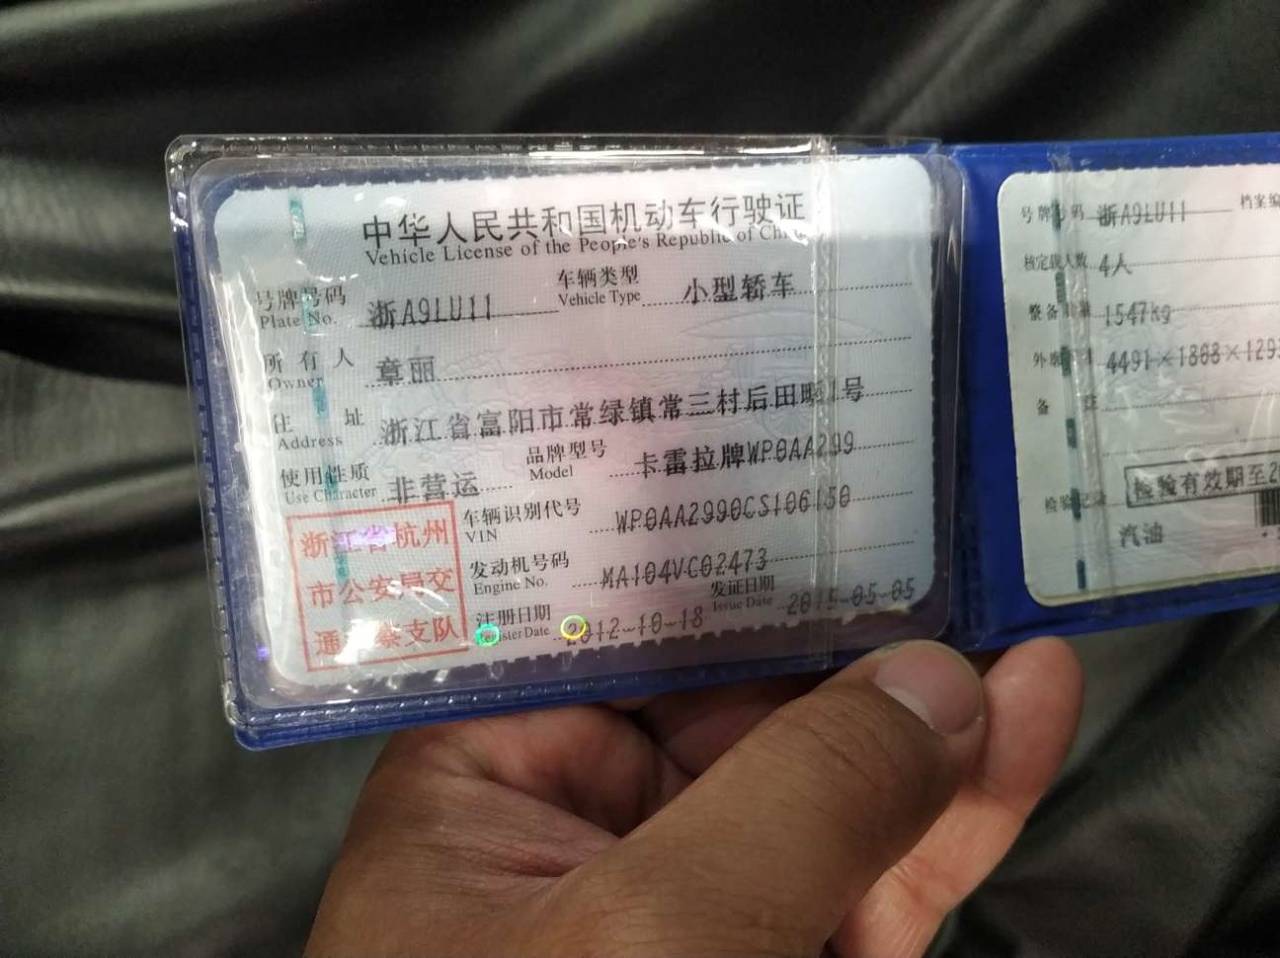 中华人民共和国机动车行驶证
Vehicle License of the People's Republic of China
号牌号码 浙A9LU11 车辆类型 小型轿车
Plate No. Vehicle Type
所有人 章丽
Owner
住址 浙江省富阳市常绿镇常三村后田畈1号
Address
使用性质 非营运 品牌型号 卡雷拉牌WP0AA299
Use Character Model
车辆识别代号 WP0AA2990CS106150
VIN
发动机号码 MA104VC02473
Engine No.
注册日期 2012-10-18 发证日期 2015-05-05
Register Date Issue Date
浙江省杭州
市公安局交
通警察支队
号牌号码 浙A9LU11 档案编
核定载人数 4人
整备质量 1547kg
外廓尺寸 4491×1808×129
备注
检验记录 检验有效期至2
汽油